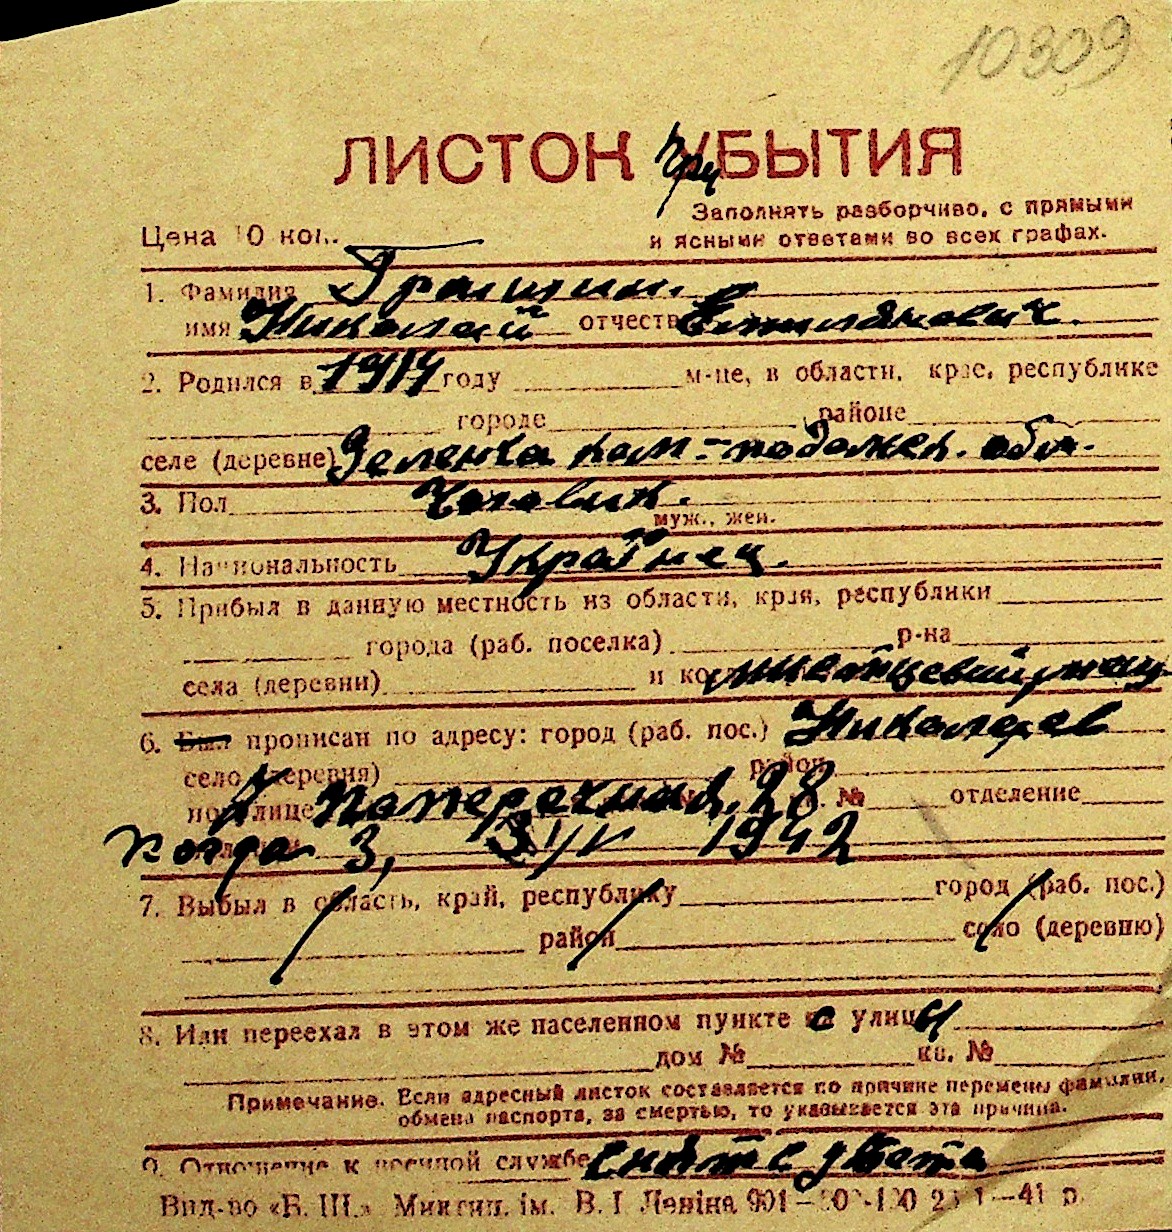 10309
ЛИСТОК УБЫТИЯ
при
Заполнять разборчиво, с прямыми
Цена 10 коп. и ясными ответами во всех графах.
1. Фамилия
имя Николай отчеств Емилянович.
2. Родился в 1914 году м-це, в области, крае, республике
городе районе
селе (деревне) Зеленка кам-подольск. обл.
3. Пол Чоловик.
муж., жен.
4. Национальность Українец.
5. Прибыл в данную местность из области, края, республики
города (раб. поселка) р-на
села (деревни) и ко
6. Был прописан по адресу: город (раб. пос.) Николаев
село (деревня) район
по улице Поперечная, 28 № отделение
когда 3, 3/IV 1942
7. Выбыл в область, край, республику город (раб. пос.)
район село (деревню)
8. Или переехал в этом же населенном пункте с улицы
дом № кв. №
Примечание. Если адресный листок составляется по причине перемены фамилии,
обмена паспорта, за смертью, то указывается эта причина.
9. Отношение к военной службе снят с учета
Вид-во «Б. Ш.» Микгин. ім. В. І Леніна 901—
—41 р.